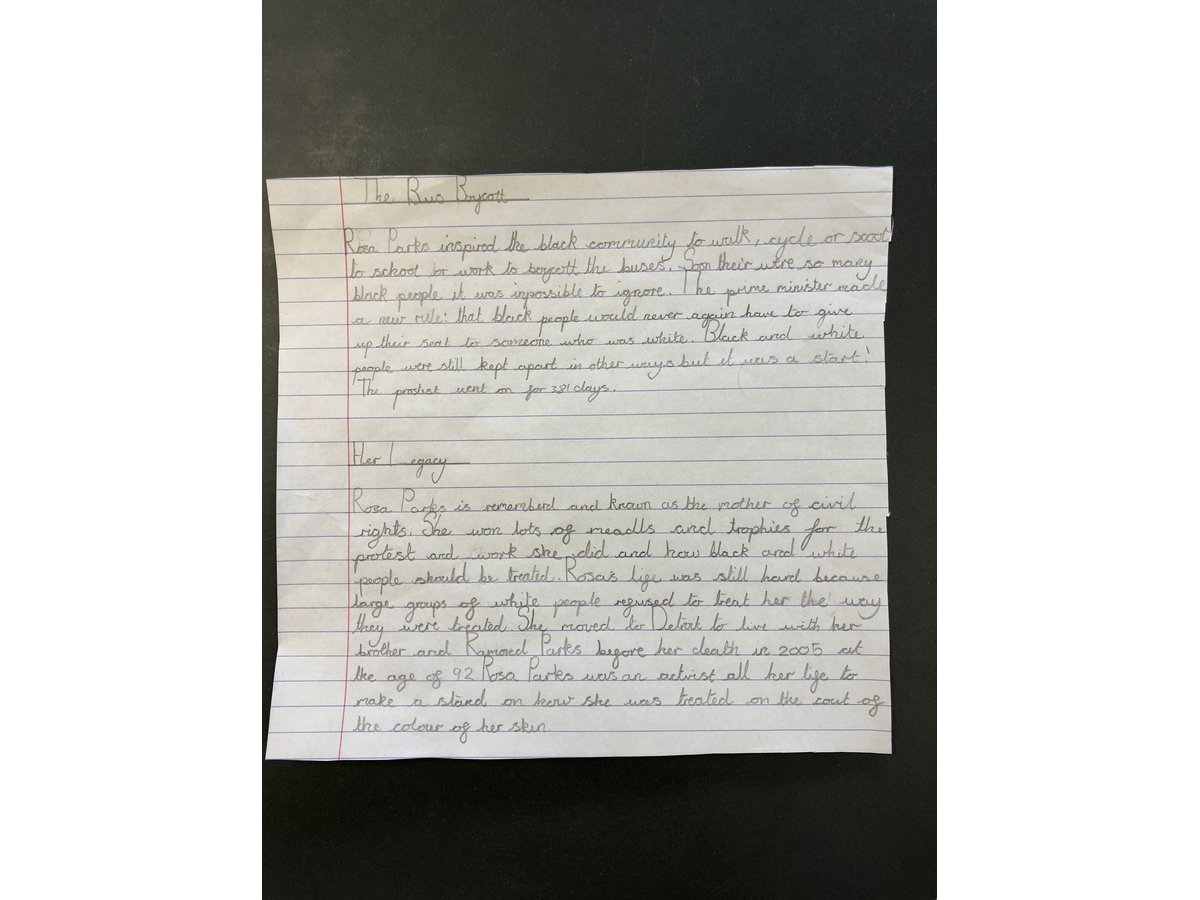 The Bus Boycott
Rosa Parks inspired the black community to walk, cycle or scoot
to school or work to boycott the buses. Soon their were so many
black people it was inpossible to ignore. The prime minister made
a new rule: that black people would never again have to give
up their seat to someone who was white. Black and white
people were still kept apart in other ways but it was a start!
The protest went on for 381 days.
Her legacy
Rosa Parks is rememberd and known as the mother of civil
rights. She won lots of meadls and trophies for the
protest and work she did and how black and white
people should be treated. Rosa's life was still hard because
large groups of white people refused to treat her the way
they were treated. She moved to Detroit to live with her
brother and Ramoed Parks before her death in 2005 at
the age of 92. Rosa Parks was an activist all her life to
make a stand on how she was treated on the cout of
the colour of her skin.